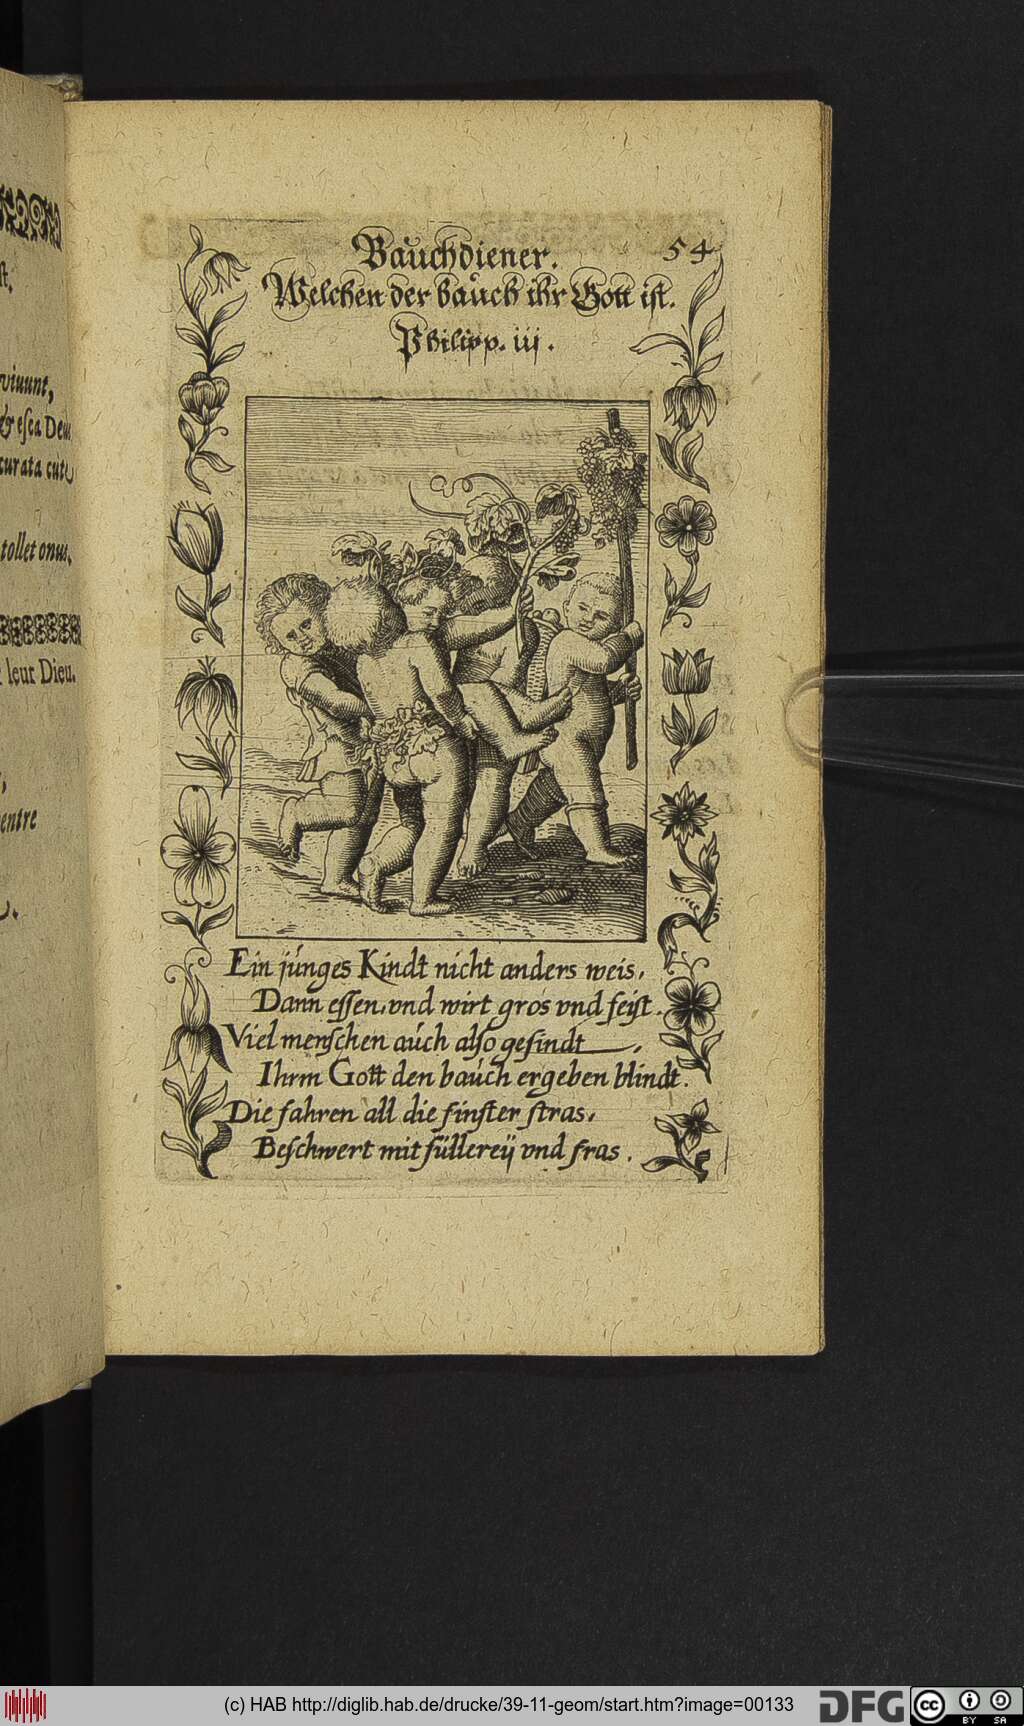 st.
viuunt,
& esca Deus
curata cute
tollet onus.
leur Dieu.
entre
Bauchdiener. 54
Welchen der bauch ihr Gott ist.
Philipp. iij.
Ein junges Kindt nicht anders weis,
Dann essen, vnd wirt gros vnd feist.
Viel menschen auch also gesindt,
Ihrm Gott den bauch ergeben blindt.
Die fahren all die finster stras,
Beschwert mit füllereÿ vnd fras.
(c) HAB http://diglib.hab.de/drucke/39-11-geom/start.htm?image=00133
DFG
cc BY SA